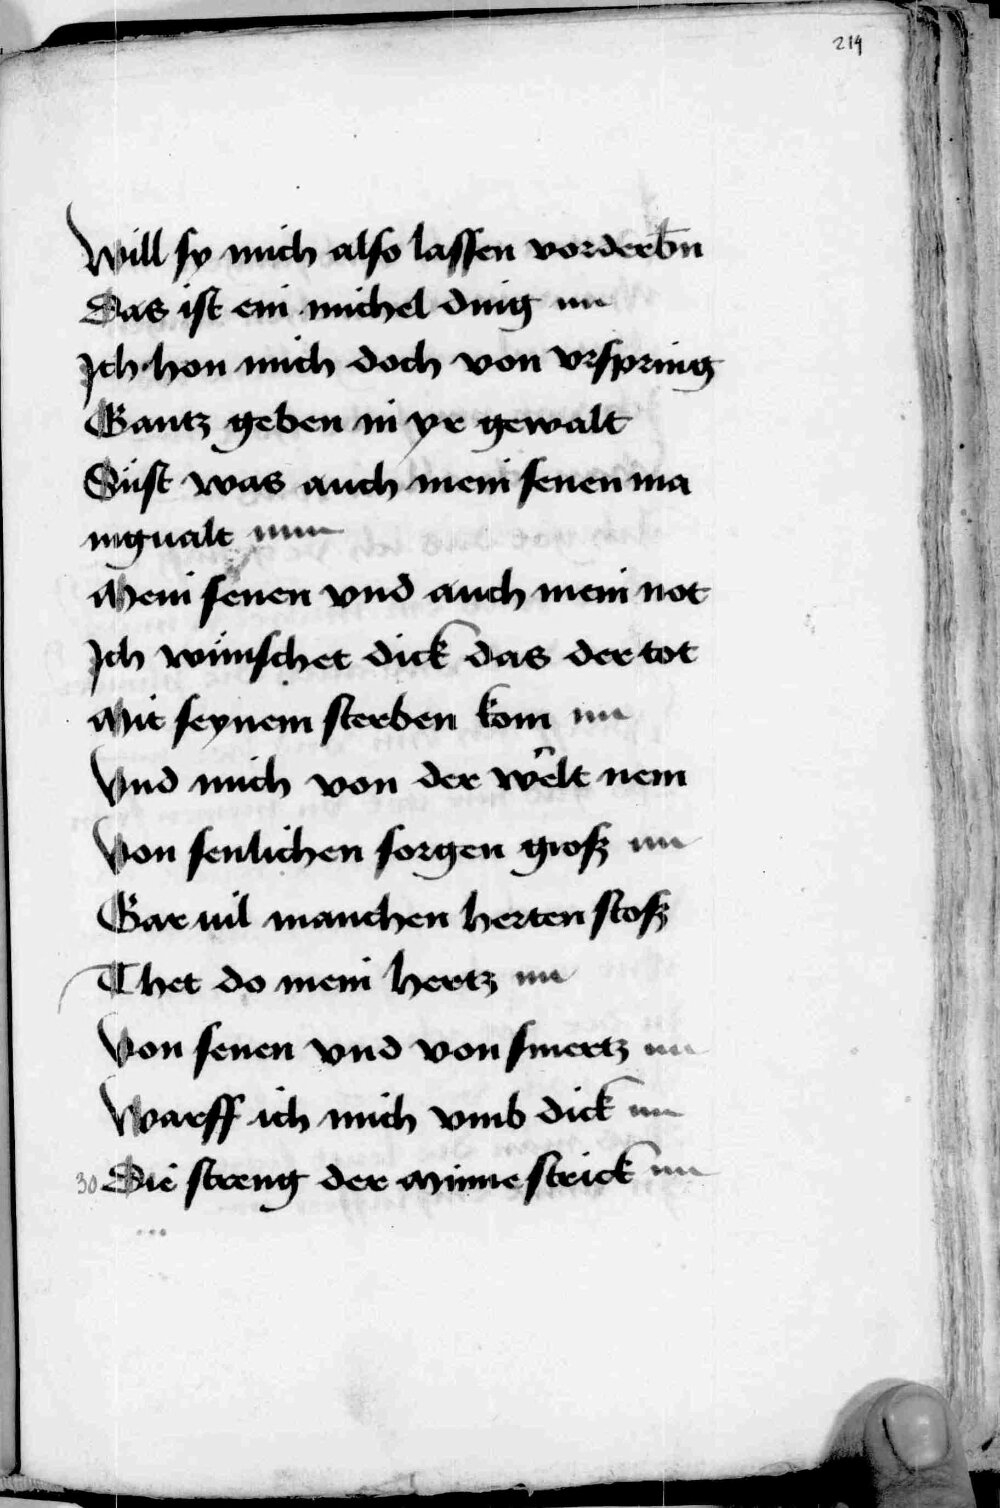 214
Will sy mich also lassen vorderbn̄
Das ist ein michel ding
Ich hon mich doch von vrspring
Gantz geben in yr gewalt
Süst was auch mein senen ma
nigualt
Mein senen vnd auch mein not
Ich wünschet dick das der tot
Mit seynem sterben kom
Vnd mich von der welt nem
Von senlichen sorgen groß
Gar uil manchen herten stoß
Thet do mein hertz
Von senen vnd von smertz
Warff ich mich vmb dick
30 Die streng der Minne strick